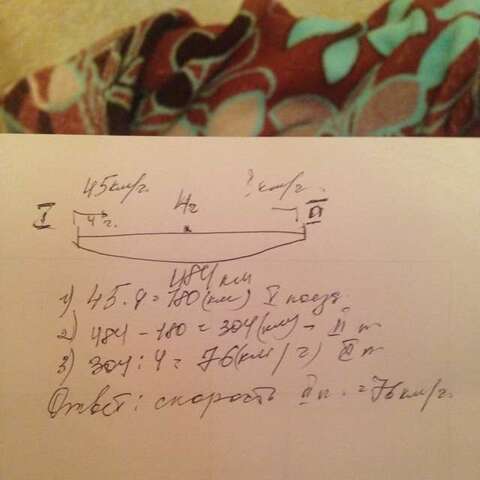 45км/г. 4г ? км/г.
I 4 г. II
484 км
1) 45 · 4 = 180 (км) I поезд
2) 484 - 180 = 304 (км) - II п
3) 304 : 4 = 76 (км/г) II п
Ответ: скорость II п. = 76 км/г.